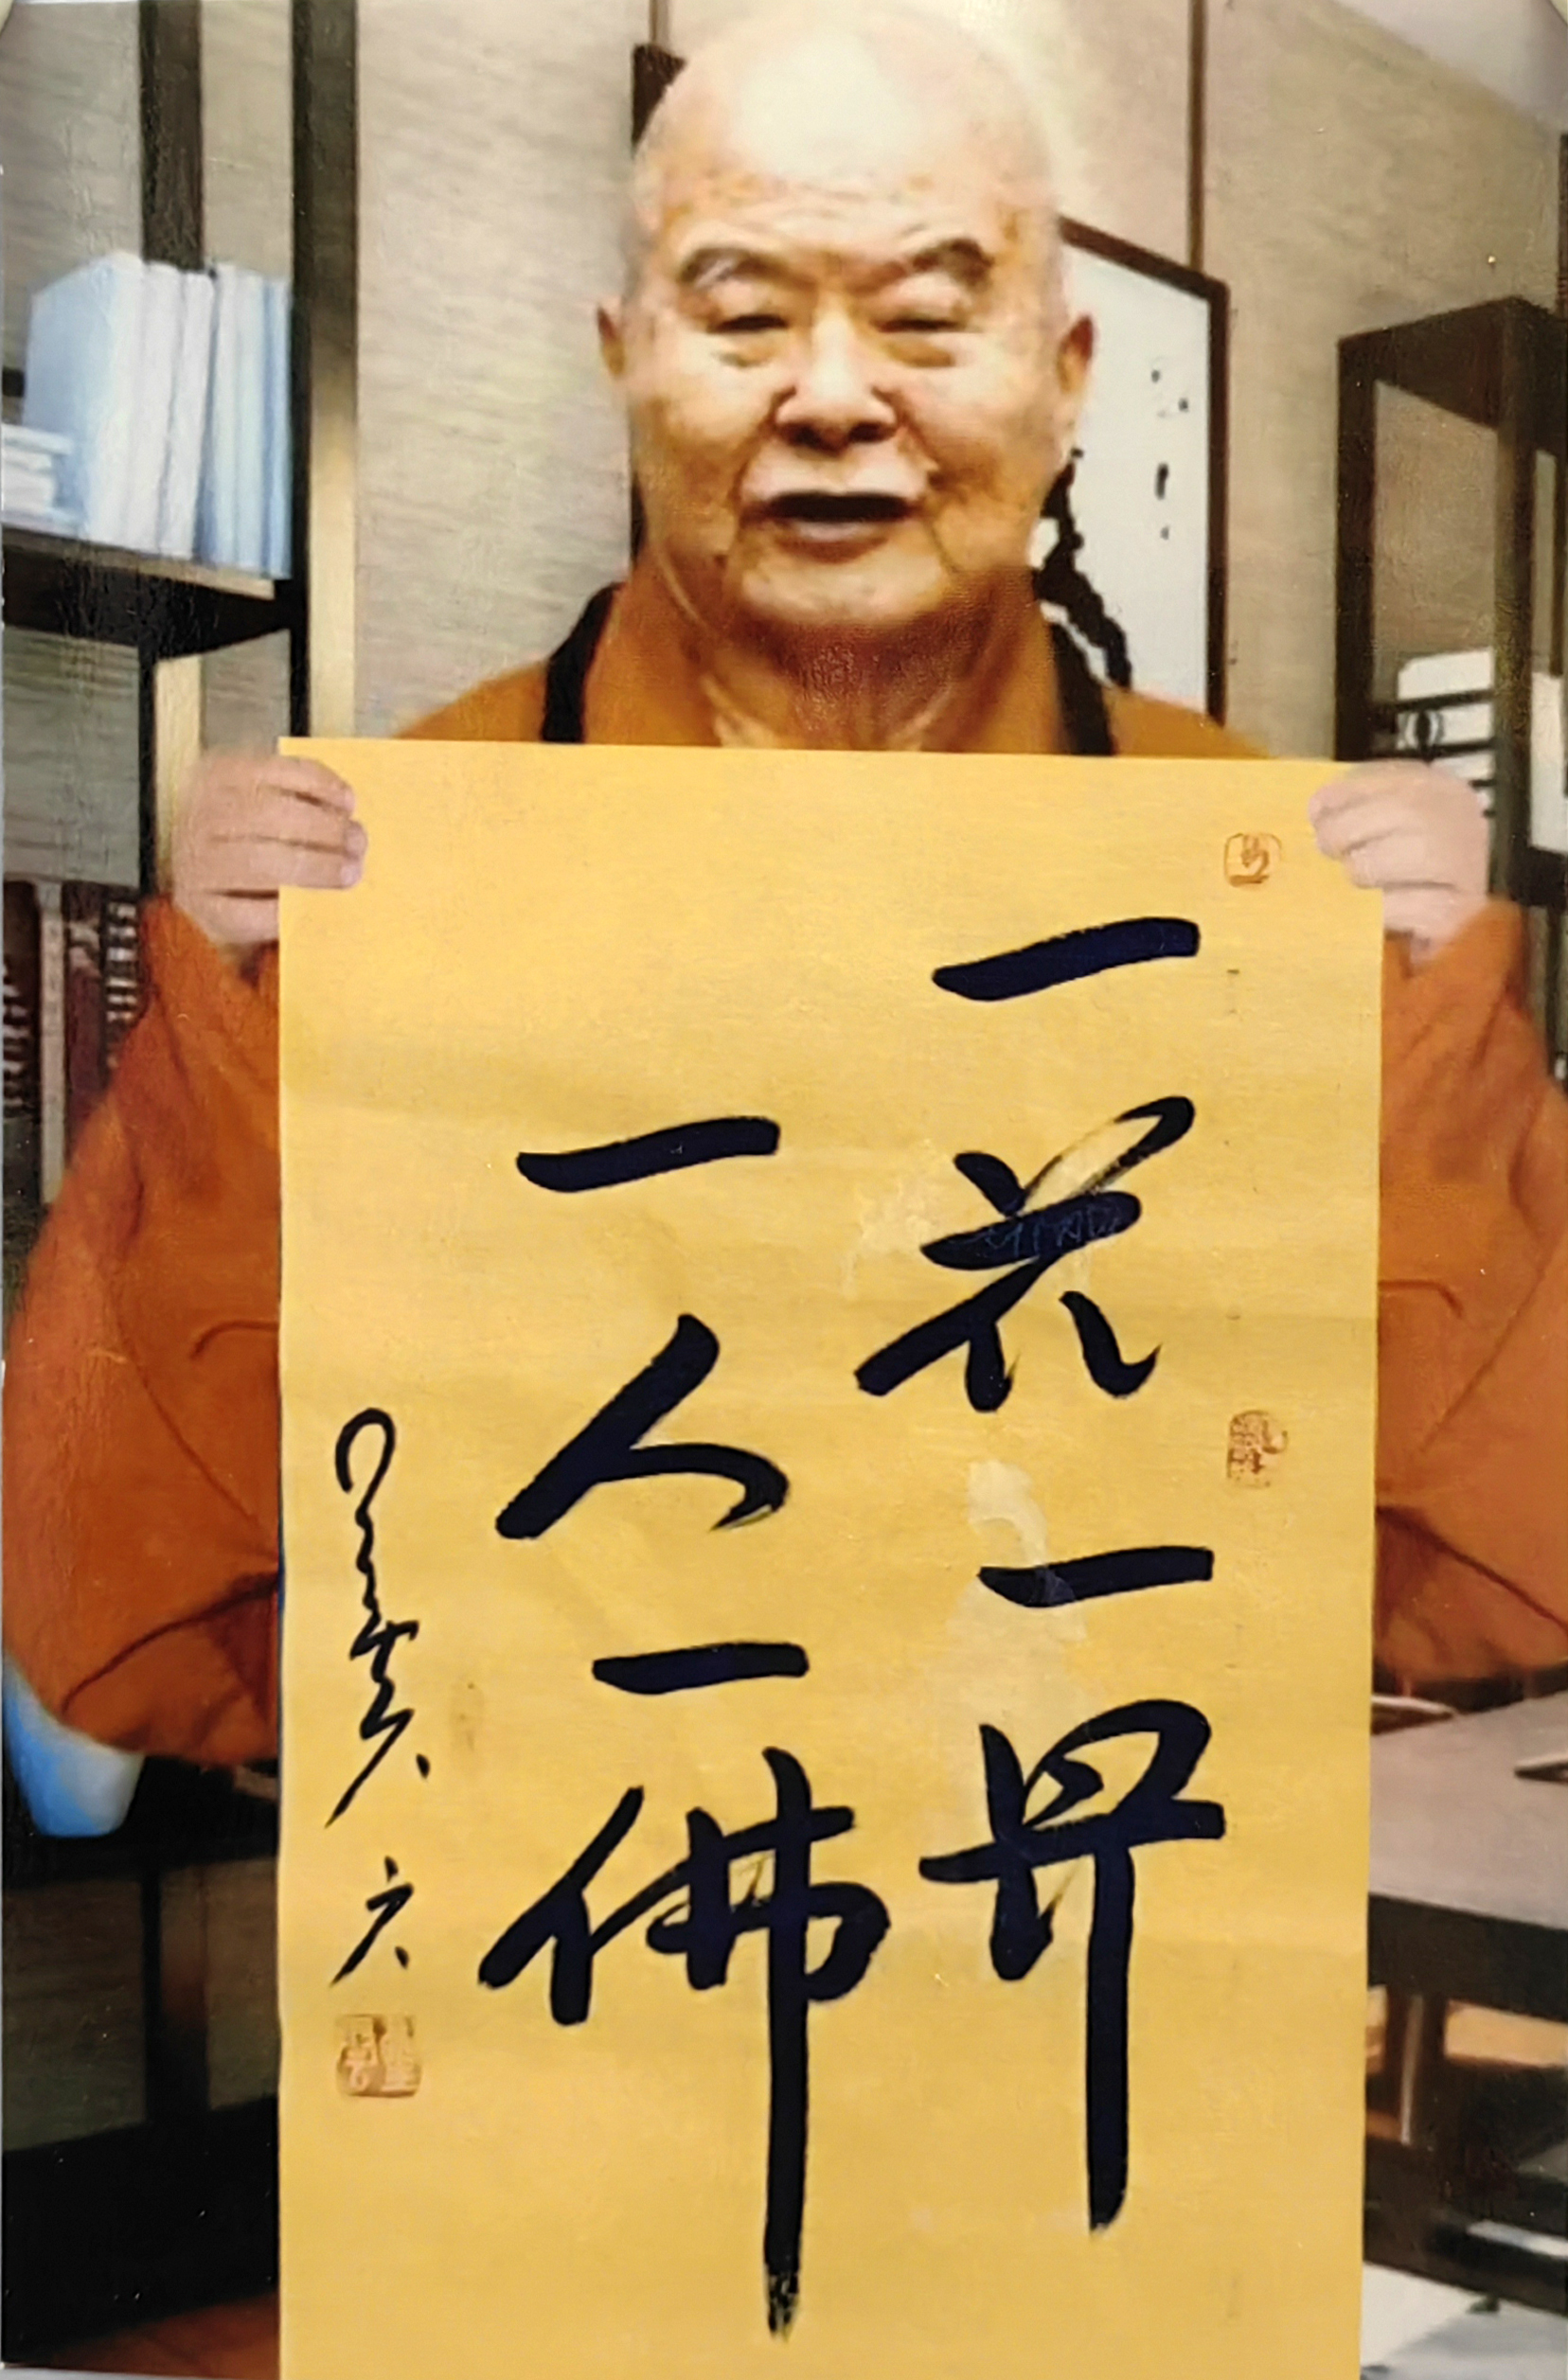 一花一界
一人一佛